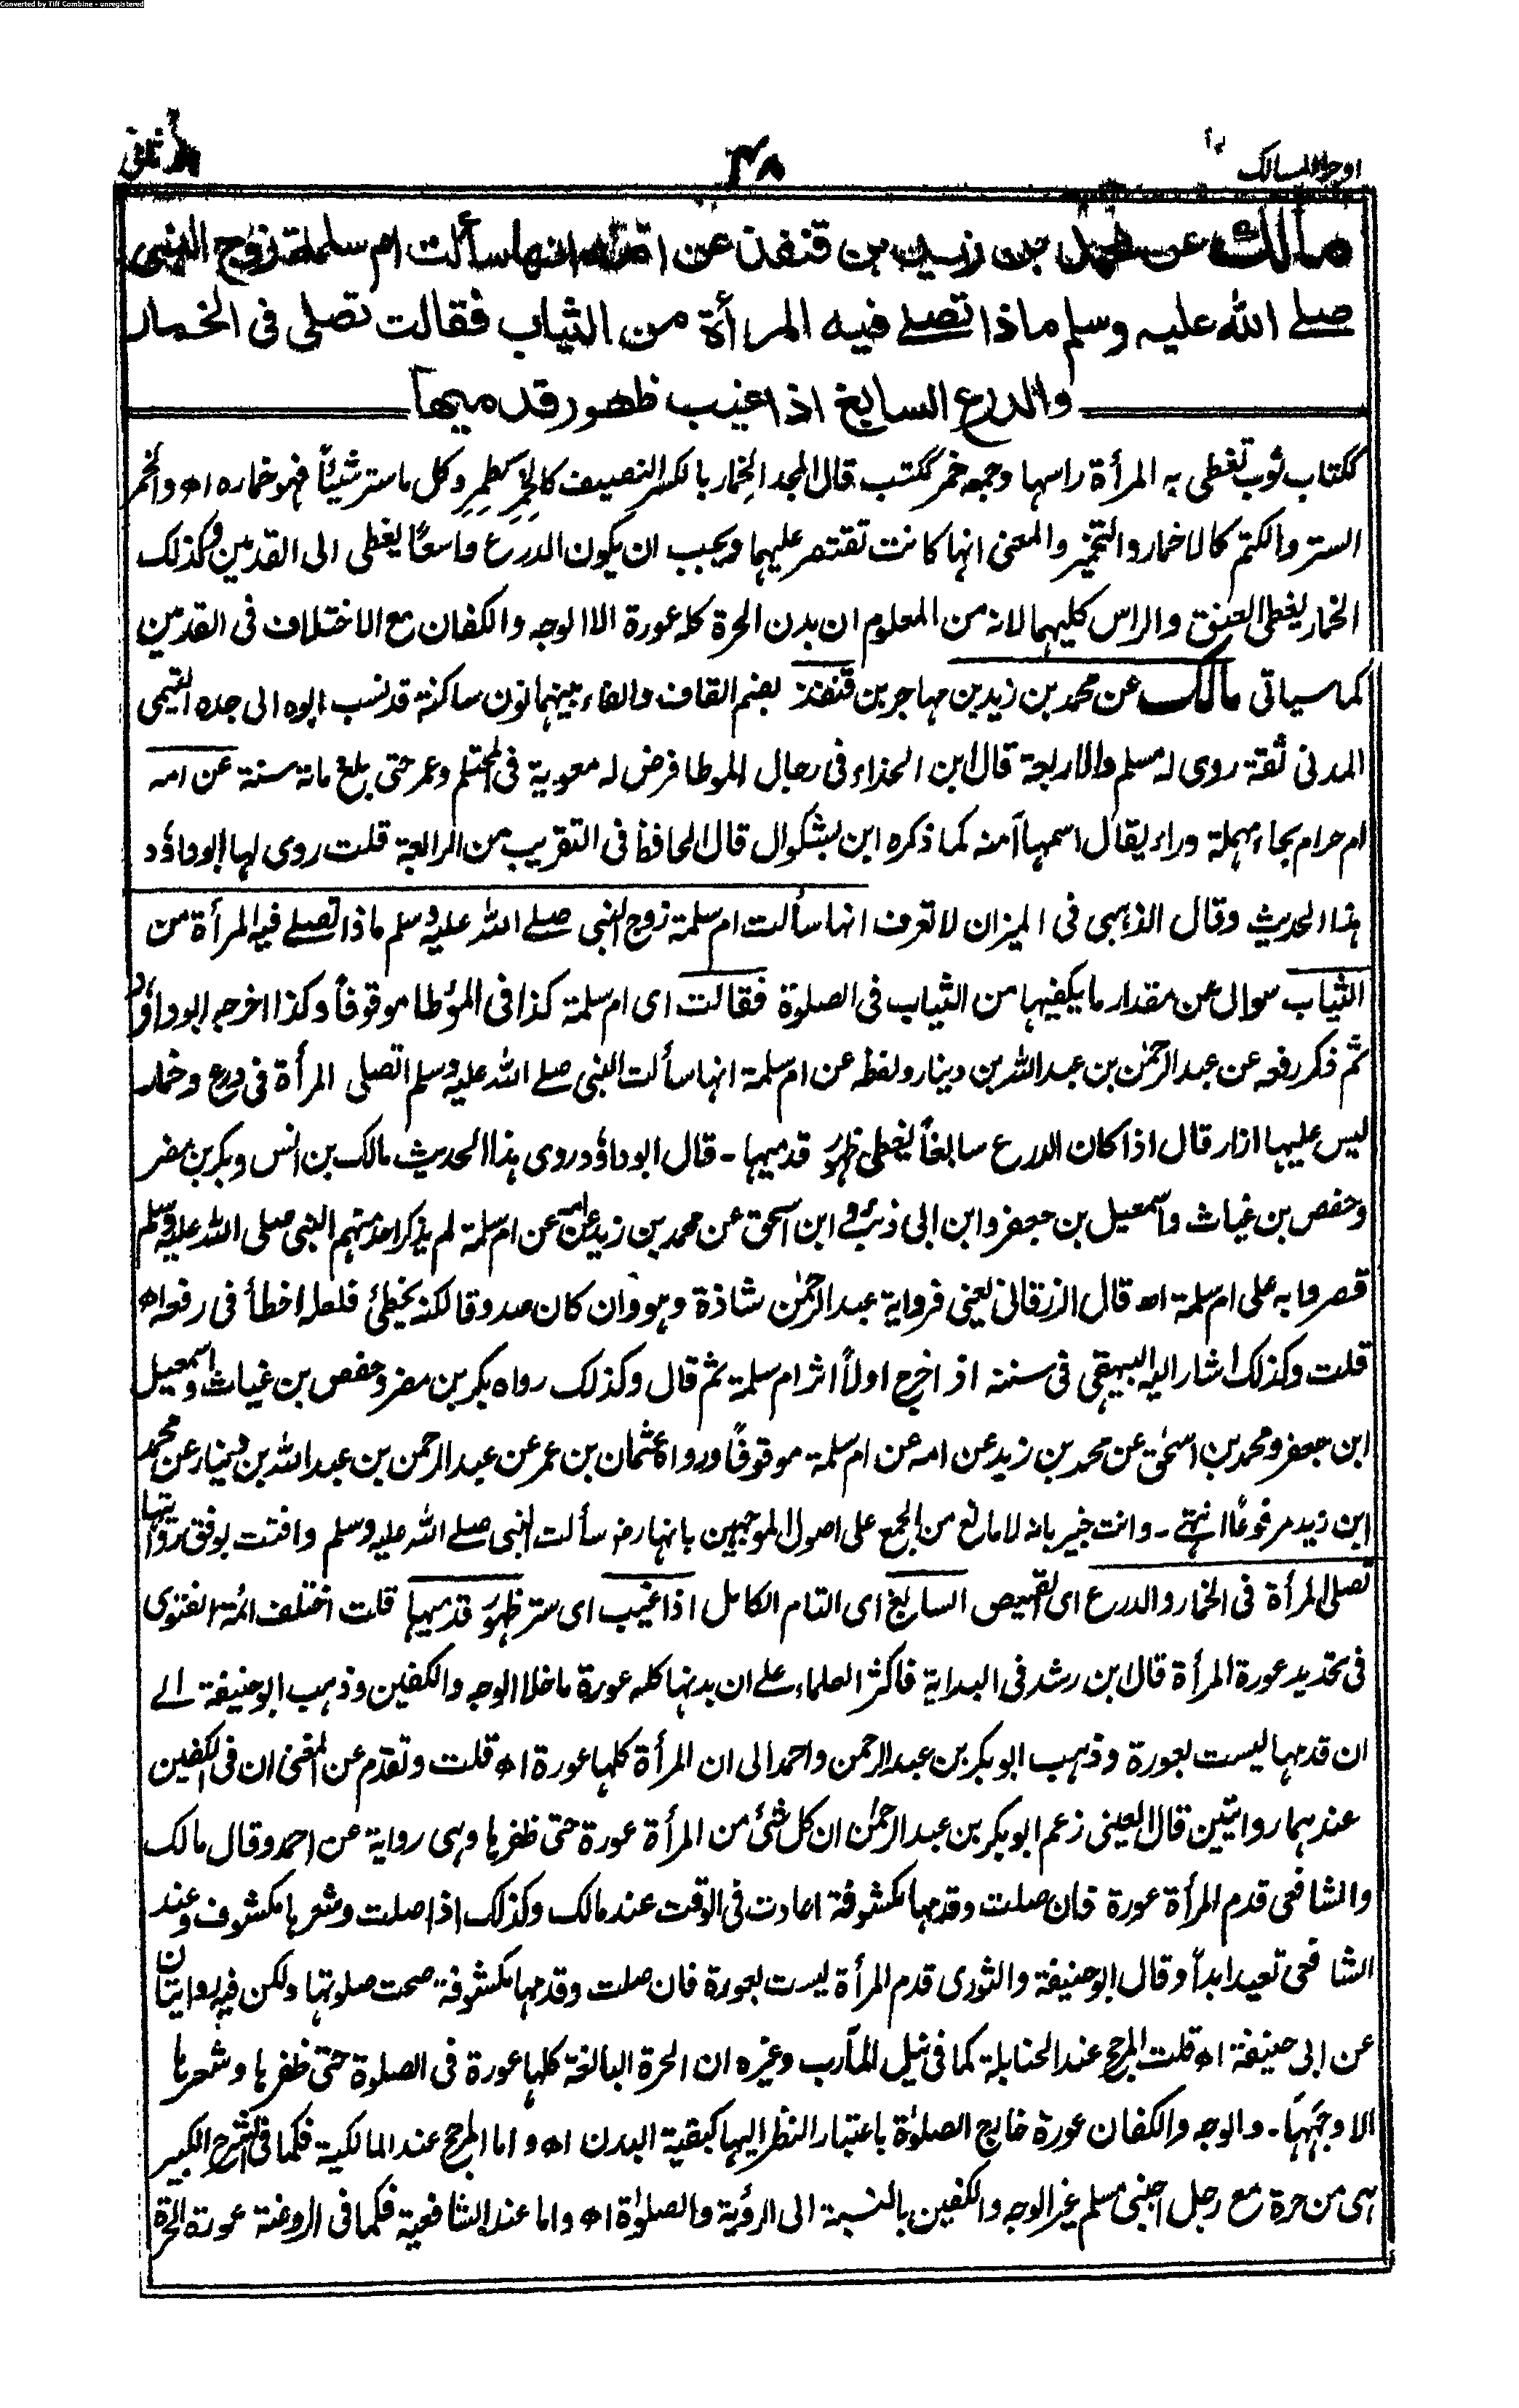 Converted by Tiff Combine - unregistered
اوجز المسالك ٣٨ ثانى
مالك عن محمد بن زيد بن قنفذ عن امه انها سألت ام سلمة زوج النبى
صلى الله عليه وسلم ماذا تصلى فيه المرأة من الثياب فقالت تصلى فى الخمار
والدرع السابغ اذا غيب ظهور قدميها
ككتاب ثوب تغطى به المرأة راسها وجمعه خمر ككتب قال المجد الخمار بالكسر النصيف كالخِمِرّ كطِمِرّ وكل ما ستر شيئاً فهو خماره اه والخمر
الستر والكتم كالاخمار والتخمير والمعنى انها كانت تقتصر عليهما ويجب ان يكون الدرع واسعاً يغطى الى القدمين وكذلك
الخمار يغطى العنق والراس كليهما لانه من المعلوم ان بدن الحرة كله عورة الا الوجه والكفان مع الاختلاف فى القدمين
كما سياتى مالك عن محمد بن زيد بن مهاجر بن قنفذ بضم القاف والفاء بينهما نون ساكنة قد نسب ابوه الى جده التيمى
المدنى ثقة روى له مسلم والاربعة قال ابن الحذاء فى رجال الموطا فرض له معوية فى المحتلم وعمر حتى بلغ مائة سنة عن امه
ام حرام بحاء مهملة وراء يقال اسمها آمنه كما ذكره ابن بشكوال قال الحافظ فى التقريب من الرابعة قلت روى لها ابوداؤد
هذا الحديث وقال الذهبى فى الميزان لا تعرف انها سألت ام سلمة زوج النبى صلى الله عليه وسلم ماذا تصلى فيه المرأة من
الثياب سوال عن مقدار ما يكفيها من الثياب فى الصلوة فقالت اى ام سلمة كذا فى المؤطا موقوفاً وكذا اخرجه ابوداؤد
ثم ذكر رفعه عن عبد الرحمن بن عبد الله بن دينار ولفظه عن ام سلمة انها سألت النبى صلى الله عليه وسلم اتصلى المرأة فى درع وخمار
ليس عليها ازار قال اذا كان الدرع سابغاً يغطى ظهور قدميها - قال ابوداؤد روى هذا الحديث مالك بن انس وبكر بن مضر
وحفص بن غياث واسمعيل بن جعفر وابن ابى ذئب وابن اسحق عن محمد بن زيد عن امه عن ام سلمة لم يذكر احد منهم النبى صلى الله عليه وسلم
قصروا به على ام سلمة اه قال الزرقانى يعنى فرواية عبد الرحمن شاذة وهو وان كان صدوقا لكنه يخطئ فلعله اخطأ فى رفعه اه
قلت وكذلك اشار اليه البيهقى فى سننه اذ اخرج اولاً اثر ام سلمة ثم قال وكذلك رواه بكر بن مضر وحفص بن غياث واسمعيل
ابن جعفر ومحمد بن اسحق عن محمد بن زيد عن امه عن ام سلمة موقوفاً ورواه عثمان بن عمر عن عبد الرحمن بن عبد الله بن دينار عن محمد
ابن زيد مرفوعًا انتهى - وانت خبير بانه لا مانع من الجمع على اصول الموجهين بانها رض سألت النبى صلى الله عليه وسلم وافتت بوفق روايتها
تصلى المرأة فى الخمار والدرع اى القميص السابغ اى التام الكامل اذا غيب اى ستر ظهور قدميها قلت اختلف ائمة الفتوى
فى تحديد عورة المرأة قال ابن رشد فى البداية فاكثر العلماء على ان بدنها كله عورة ما خلا الوجه والكفين وذهب ابو حنيفة الى
ان قدمها ليست بعورة وذهب ابو بكر بن عبد الرحمن واحمد الى ان المرأة كلها عورة اه قلت وتقدم عن المغنى ان فى الكفين
عندهما روايتين قال العينى زعم ابو بكر بن عبد الرحمن ان كل شئ من المرأة عورة حتى ظفرها وهى رواية عن احمد وقال مالك
والشافعى قدم المرأة عورة فان صلت وقدمها مكشوفة اعادت فى الوقت عند مالك وكذلك اذا صلت وشعرها مكشوف وعند
الشافعى تعيد ابداً وقال ابو حنيفة والثورى قدم المرأة ليست بعورة فان صلت وقدمها مكشوفة صحت صلوتها ولكن فيه روايتان
عن ابى حنيفة اه قلت المرجح عند الحنابلة كما فى نيل المآرب وغيره ان الحرة البالغة كلها عورة فى الصلوة حتى ظفرها وشعرها
الا وجهها - والوجه والكفان عورة خارج الصلوة باعتبار النظر اليها كبقية البدن اه واما المرجح عند المالكية فكما فى الشرح الكبير
هى من حرة مع رجل اجنبى مسلم غير الوجه والكفين بالنسبة الى الرؤية والصلوة اه واما عند الشافعية فكما فى الروضة عورة الحرة